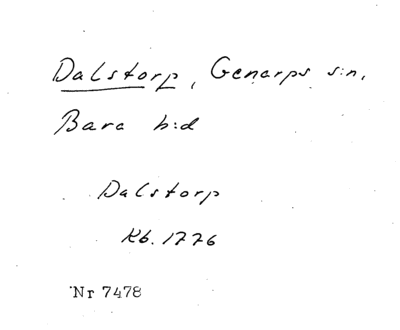 Dalstorp, Genarps s:n,
Bara h:d
Dalstorp
Kb. 1776
Nr 7478